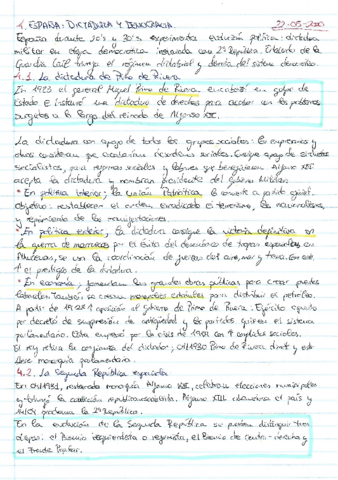 1. ESPAÑA: DICTADURA Y DEMOCRACIA.
España durante 20's y 30's experimenta evolución política: dictadura
militar en etapa democrática inaugurada con 2ª República. Estallido de la
Guerra Civil trunca el régimen dictatorial y derriba del sistema democrático.
1.1. La dictadura de Primo de Rivera
En 1923 el general Miguel Primo de Rivera encabezó un golpe de
Estado e instauró una dictadura de derechas para acabar con los problemas
surgidos a lo largo del reinado de Alfonso XIII.
La dictadura con apoyo de todos los grupos sociales: los empresarios y
otros consideran que acabarían incidentes sociales. Consigue apoyo de sindicatos
socialistas, pues reformas sociales y laborales que beneficiaron. Alfonso XIII
acepta la dictadura y nombran presidente del gobierno militar.
* En política interior; la Unión Patriótica, lo convierte a partido oficial.
Objetivo: restablecer el orden erradicando el terrorismo, los nacionalismos,
y reprimiendo de las manifestaciones.
* En política exterior, la dictadura consigue la victoria definitiva en
la guerra de Marruecos por el éxito del desembarco de tropas españolas en
Alhucemas, se vio la coordinación de fuerzas del aire, mar y tierra. Con este,
↑ el prestigio de la dictadura.
* En economía; fomentaron las grandes obras públicas para crear puestos
laborales. También se crearon monopolios estatales para distribuir el petróleo.
A partir de 1928 ↑ oposición al gobierno de Primo de Rivera. Ejército opuesto
por decreto de supresión de antigüedad y los partidos quieren el sistema
parlamentario. Esta empeoró por la crisis de 1929 con ↑ conflictos sociales.
El rey retira la confianza del dictador; 01/1930 Primo de Rivera dimite y se
llevó monarquía parlamentaria.
4.2. La Segunda República española
En 04/1931, restaurada monarquía Alfonso XIII, celebraron elecciones municipales
y triunfó la coalición republicanosocialista. Alfonso XIII abandona el país y
14/04 proclama la 2ª República.
En la evolución de la Segunda República se podrían distinguir tres
etapas: el Bienio izquierdista o reformista, el Bienio de centro-derecha y
el Frente Popular.